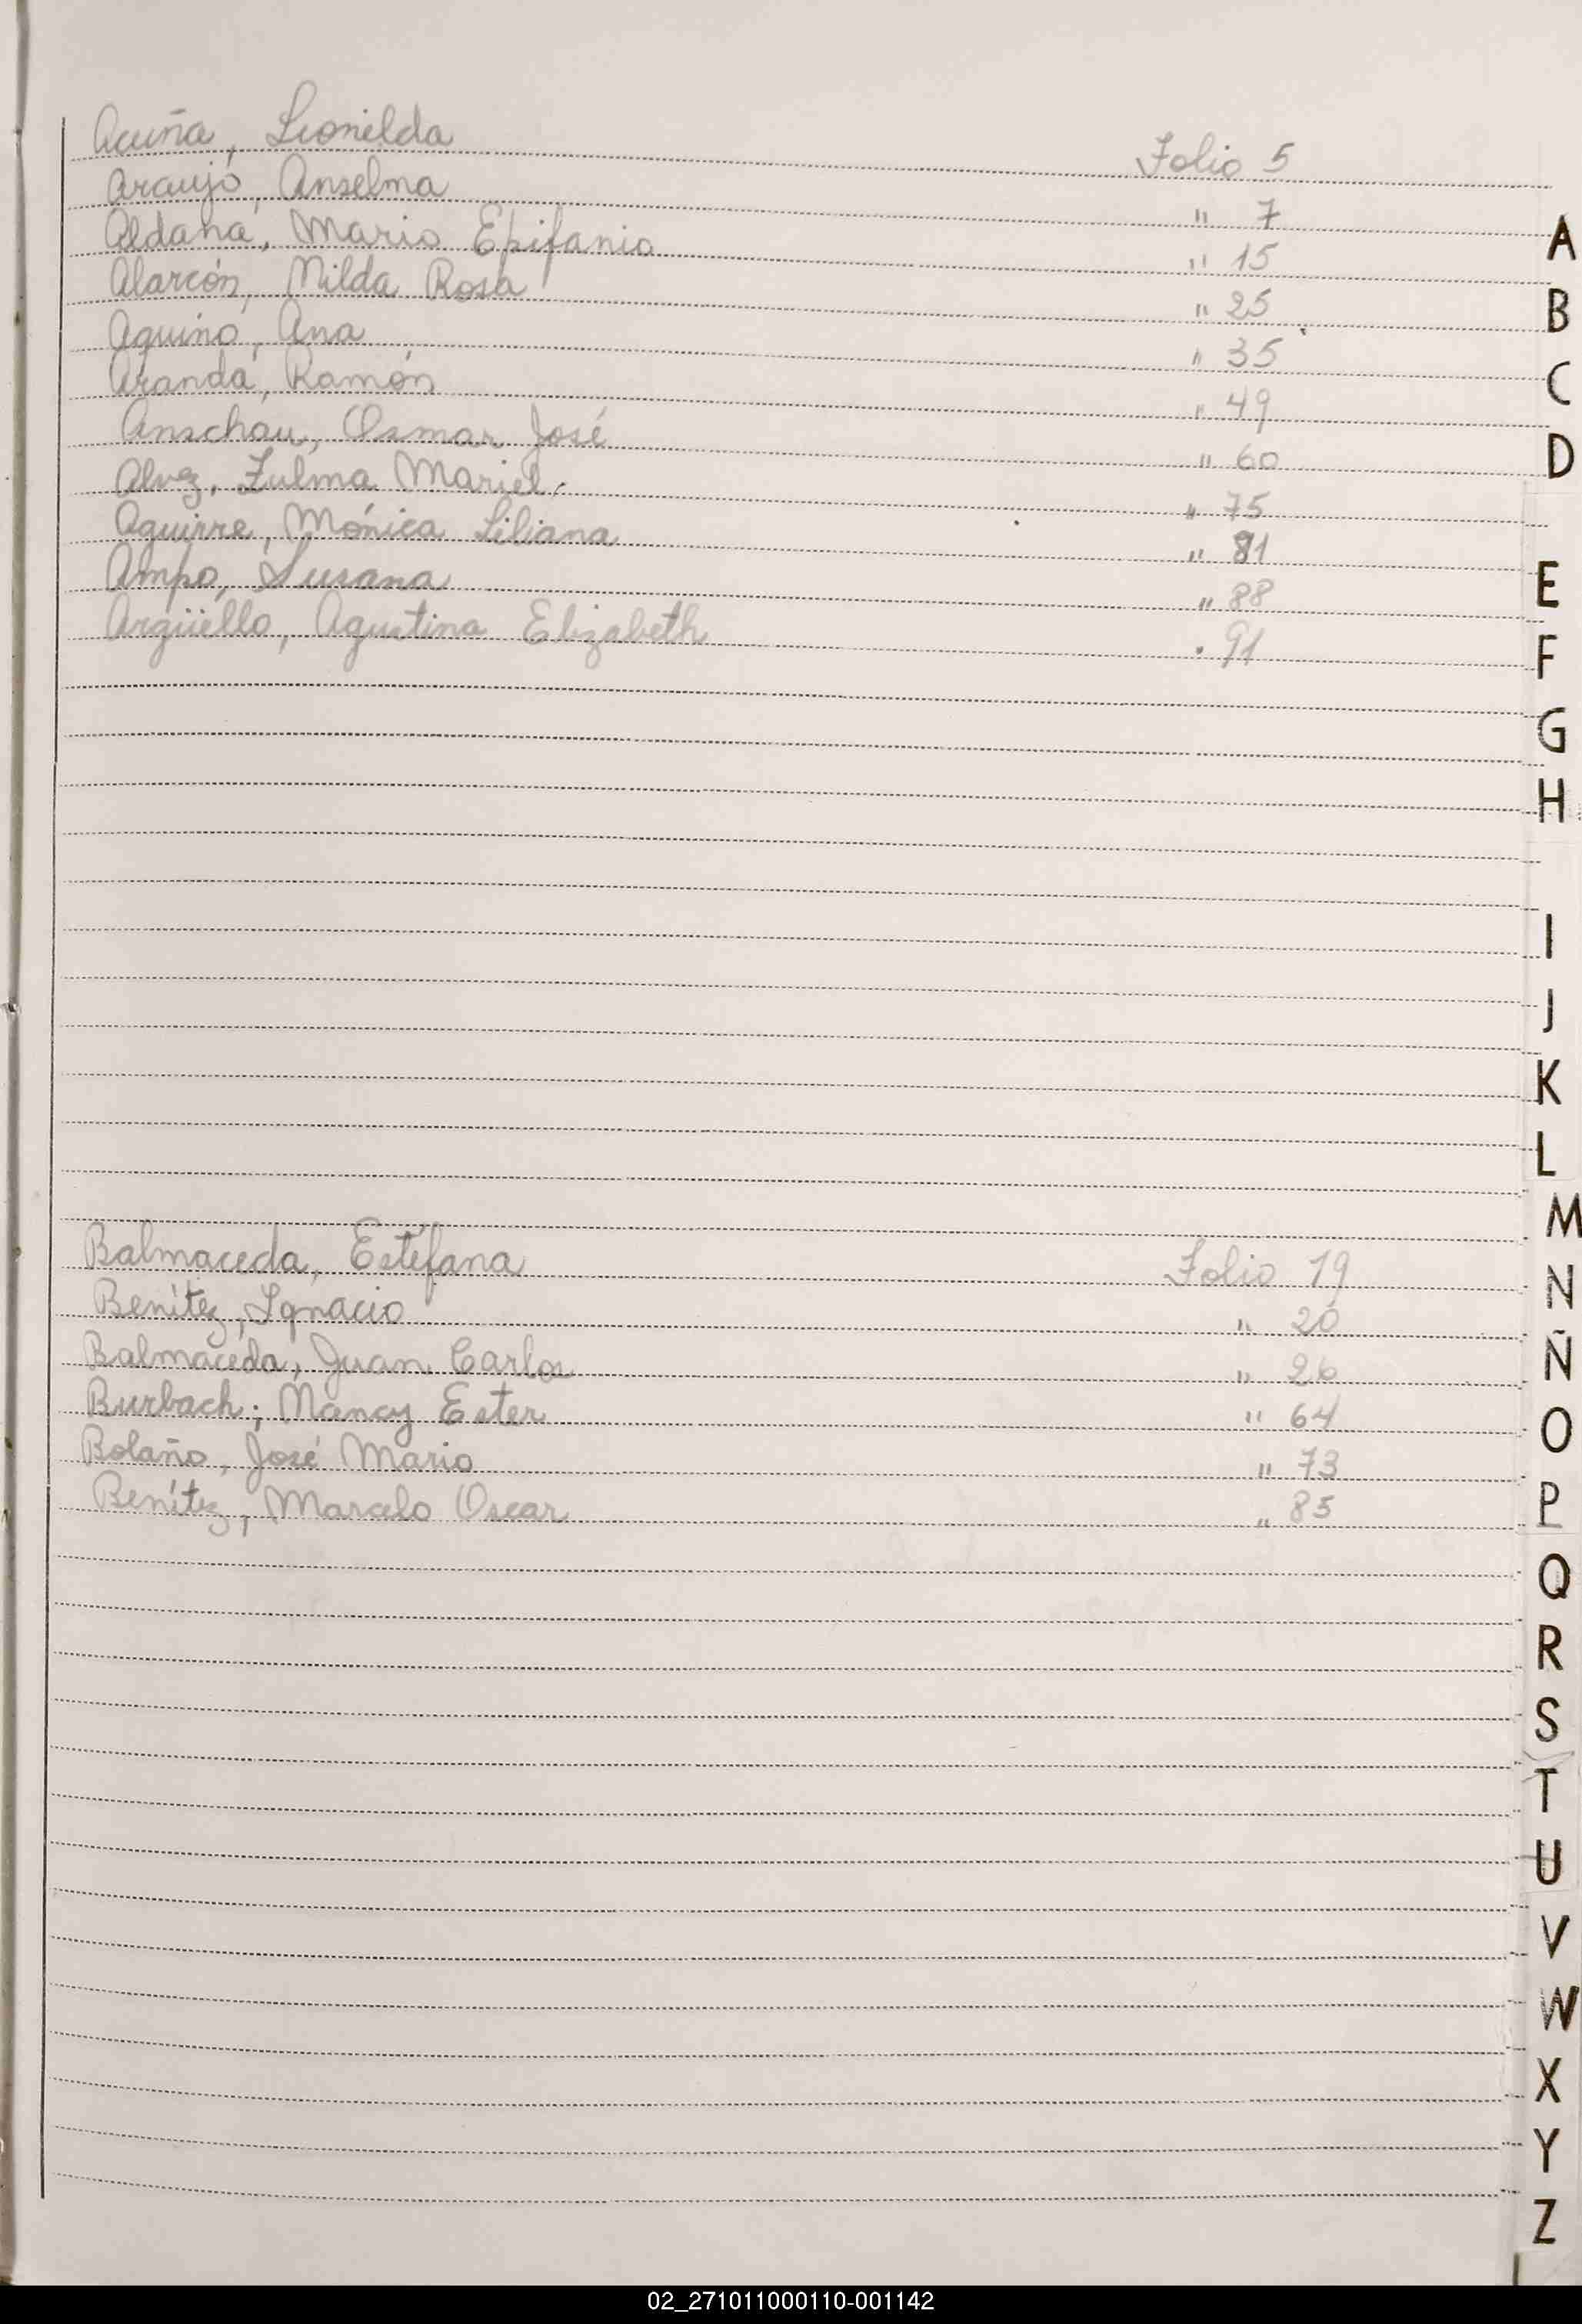 Acuña, Leonilda Folio 5
Araujo, Anselma " 7
Aldana, Mario Epifanio " 15
Alarcón, Nilda Rosa " 25
Aquino, Ana " 35
Aranda, Ramón " 49
Anschau, Osmar José " 60
Alvez, Zulma Mariel. " 75
Aguirre, Mónica Liliana " 81
Ampo, Susana " 88
Argüello, Agustina Elizabeth " 91
Balmaceda, Estefana Folio 19
Benítez, Ignacio " 20
Balmaceda, Juan Carlos " 26
Burbach; Nancy Ester " 64
Bolaño, José Mario " 73
Benítez, Marcelo Oscar " 85
A
B
C
D
E
F
G
H
I
J
K
L
M
N
Ñ
O
P
Q
R
S
T
U
V
W
X
Y
Z
02_271011000110-001142